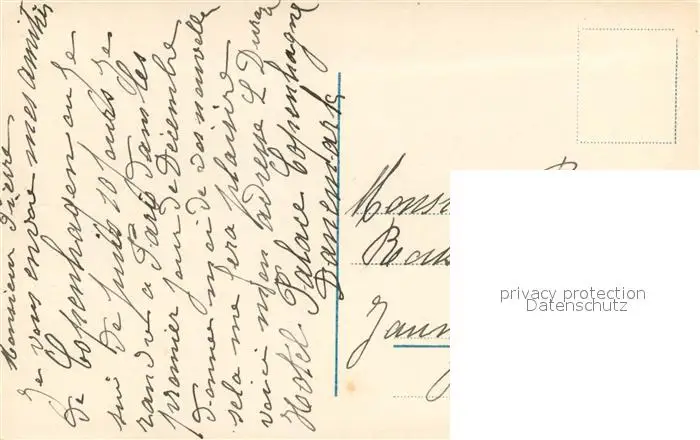 Monsieur Pierre
Je vous envoie mes amitiés
de Copenhagen ou je
sui depuis 10 jours je
randre a Paris dans les
premier jour de Décembre
donner moi de vos nouvelle
sela me fera plaisire
voici mon adresse L Durez
Hotel Palace Copenhagne
Danemark
Monsi
Rou
Jann
privacy protection
Datenschutz